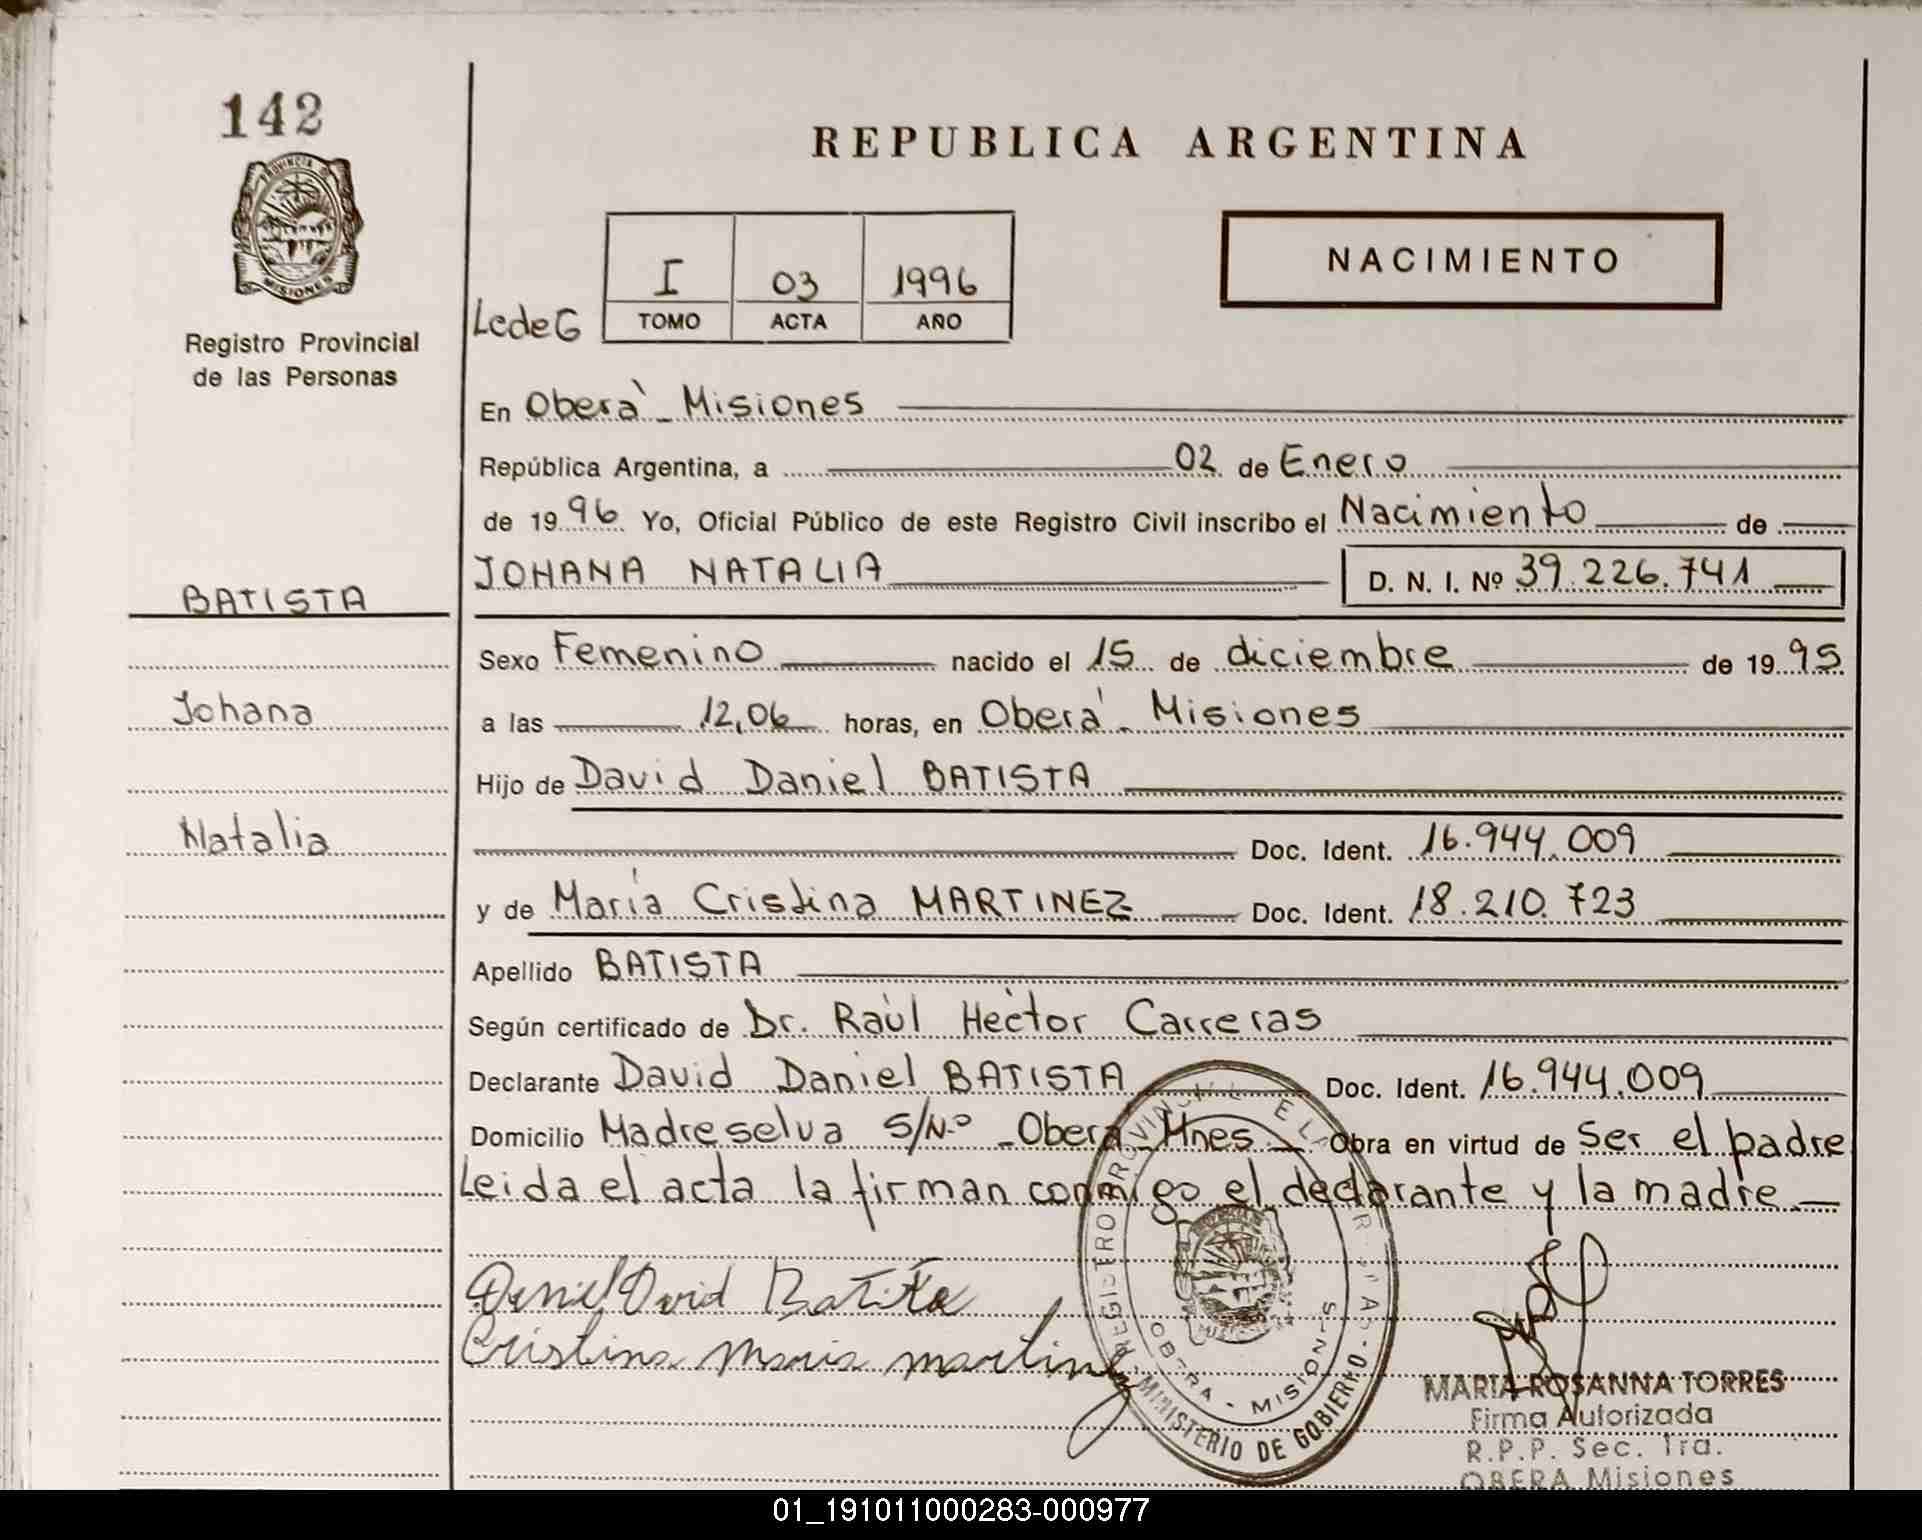 142
REPUBLICA ARGENTINA
PROVINCIA DE
MISIONES
Registro Provincial
de las Personas
NACIMIENTO
LcdeG I 03 1996
TOMO ACTA AÑO
En Oberà _ Misiones
República Argentina, a 02 de Enero
de 1996 Yo, Oficial Público de este Registro Civil inscribo el Nacimiento de
BATISTA
JOHANA NATALIA D. N. I. Nº 39.226.741
Sexo Femenino nacido el 15 de diciembre de 1995
Johana
a las 12,06 horas, en Oberá - Misiones
Hijo de David Daniel BATISTA
Natalia
Doc. Ident. 16.944.009
y de María Cristina MARTINEZ Doc. Ident. 18.210.723
Apellido BATISTA
Según certificado de Dr. Raúl Héctor Carreras
Declarante David Daniel BATISTA Doc. Ident. 16.944.009
Domicilio Madreselva S/N.º _Obera_Mnes_ Obra en virtud de Ser el padre
Leida el acta la firman conmigo el declarante y la madre.—
Daniel David Batista
Cristina Maria Martinez
REGISTRO PROVINCIAL DE LAS PERSONAS
OBERA - MISIONES
MINISTERIO DE GOBIERNO
MARIA ROSANNA TORRES
Firma Autorizada
R.P.P. Sec. 1ra.
OBERA Misiones
01_191011000283-000977